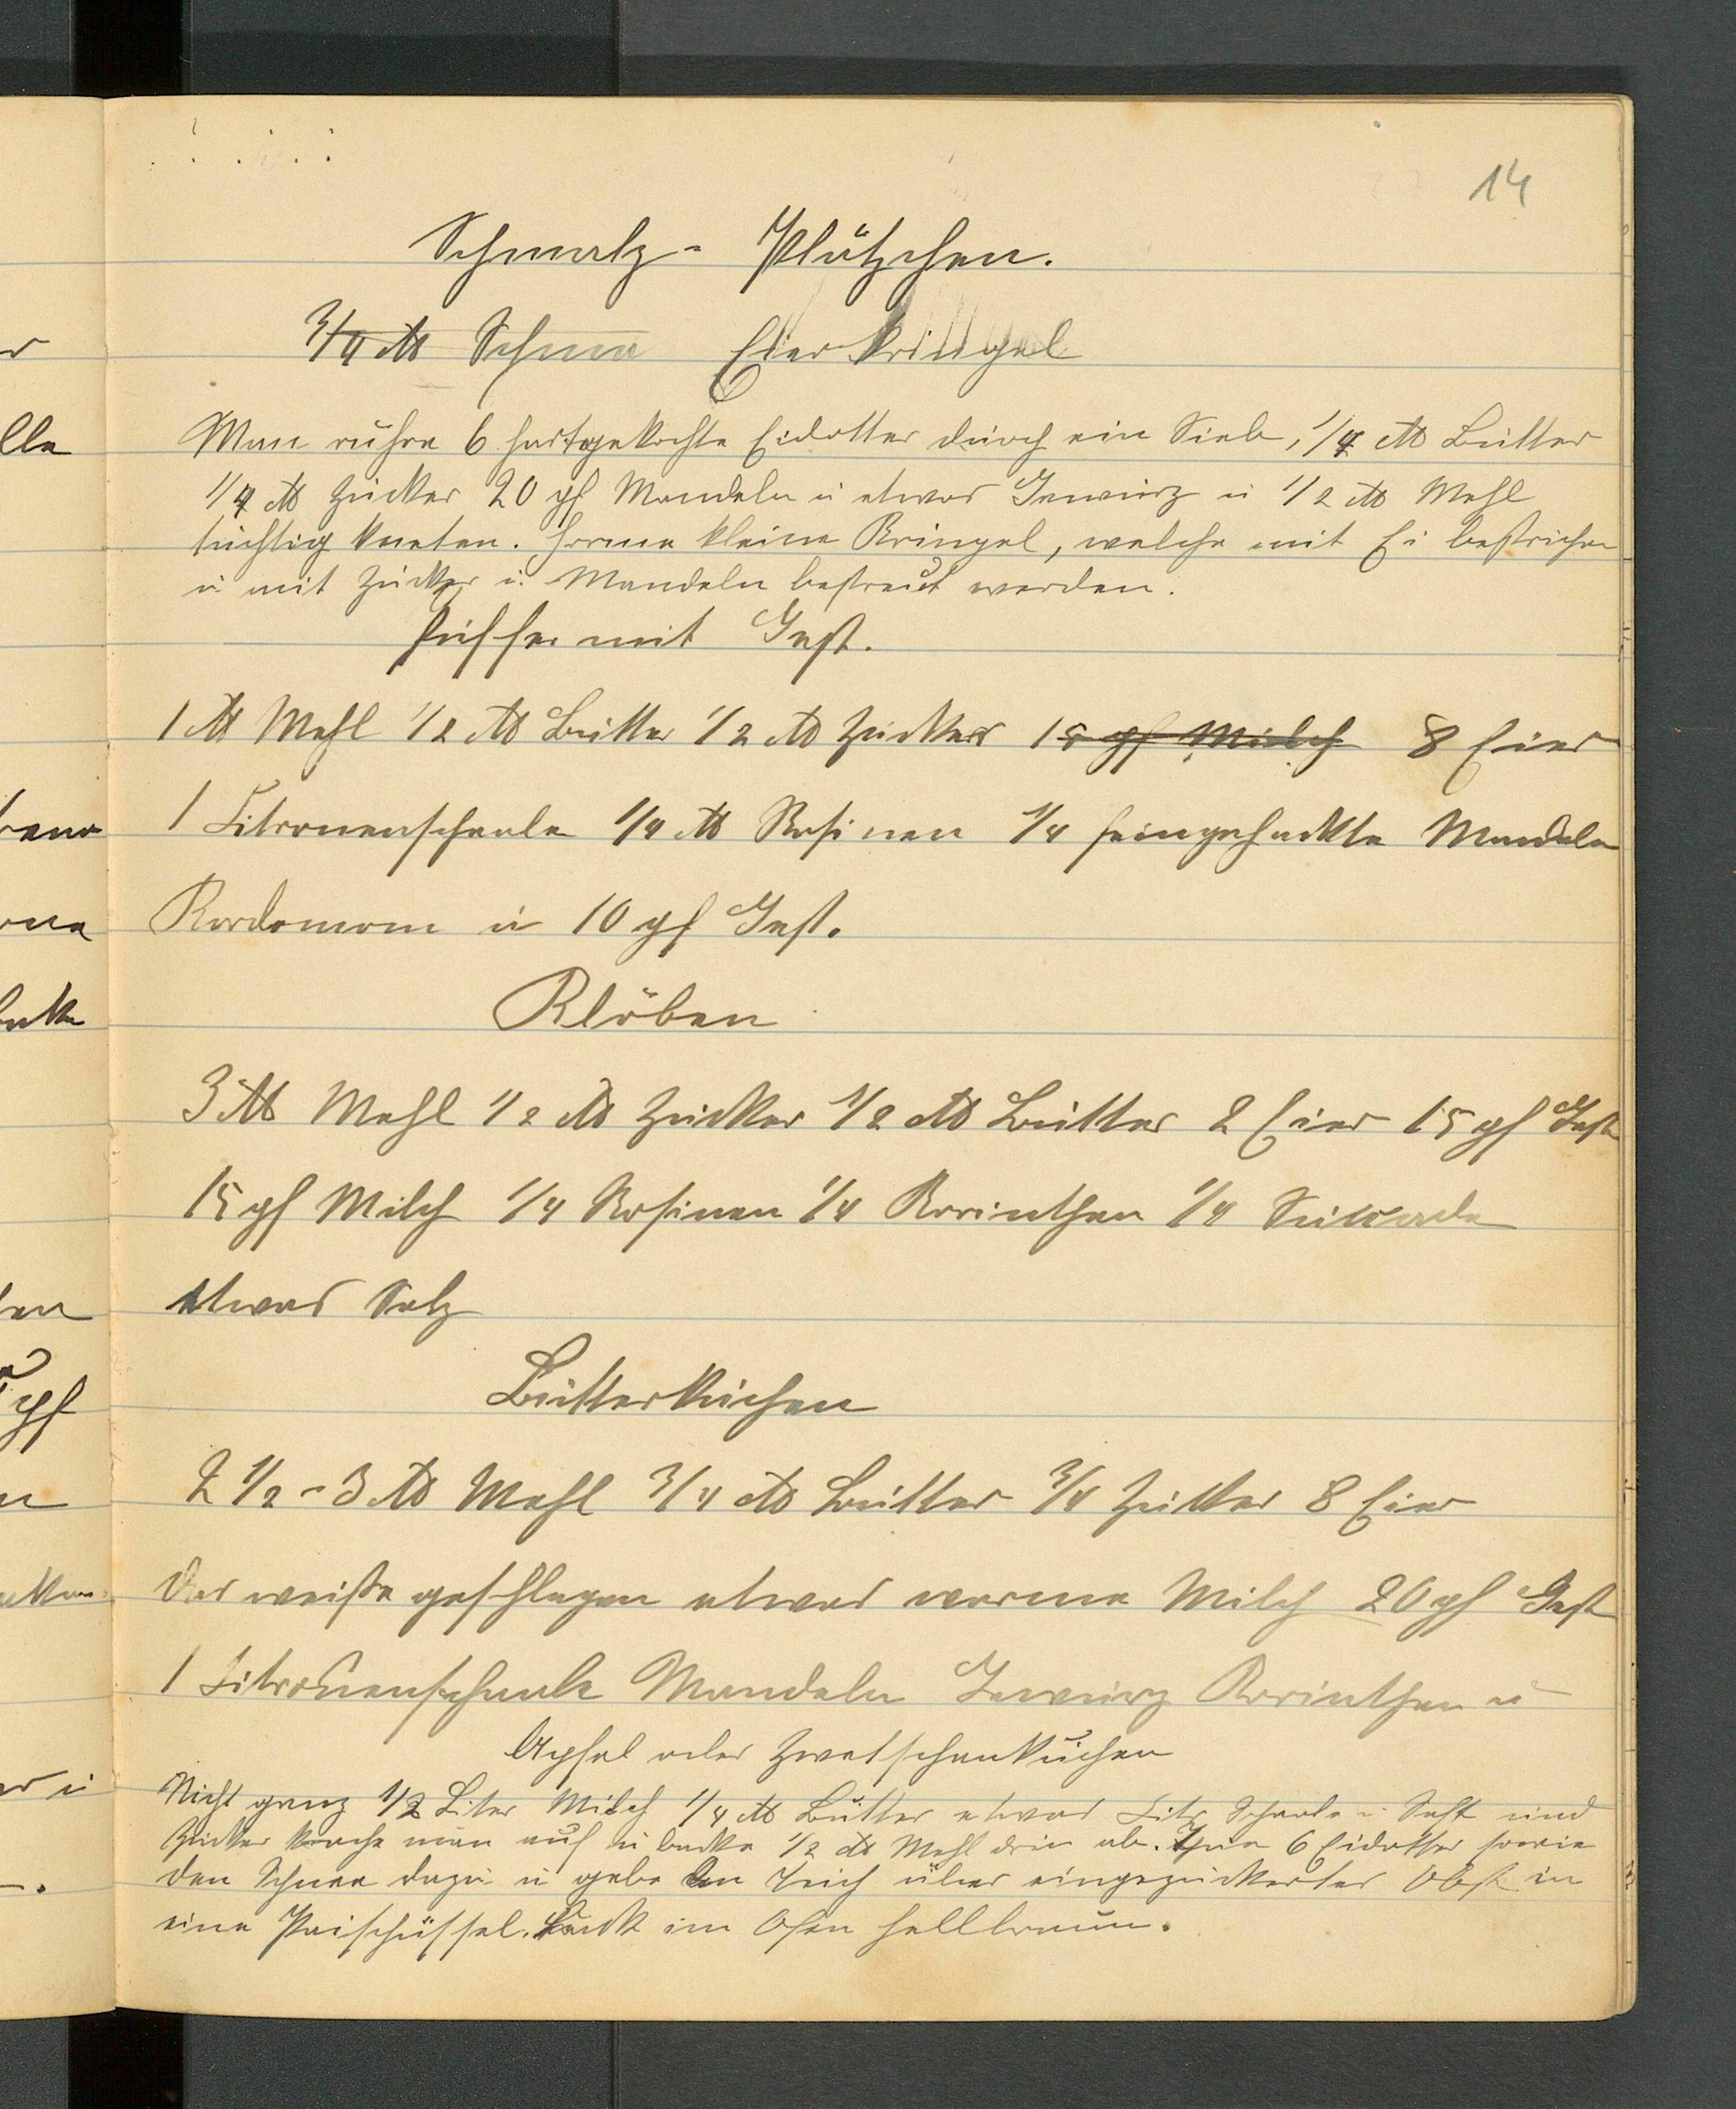 14
Schmalz- Plätzchen.
3/4 ℔ Schma Eierkringel
Man rühre 6 hartgekochte Eidotter durch ein Sieb, 1/4 ℔ Butter
1/4 ℔ Zucker 20 pf Mandeln u etwas Gewürz u 1/2 ℔ Mehl
tüchtig kneten. Forme kleine Kringel, welche mit Ei bestrichen
u mit Zucker u Mandeln bestreut werden.
Puffer mit Gest.
1 ℔ Mehl 1/2 ℔ Butter 1/2 ℔ Zucker 15 pf Milch 8 Eier
1 Citronenschaale 1/4 ℔ Rosinen 1/4 feingehackte Mandeln
Kardamom u 10 pf Gest.
Klöben
3 ℔ Mehl 1/2 ℔ Zucker 1/2 ℔ Butter 2 Eier 15 pf Gest
15 pf Milch 1/4 Rosinen 1/4 Korinthen 1/4 Sukkade
etwas Salz
Butterkuchen
2 1/2 - 3 ℔ Mehl 3/4 ℔ Butter 3/4 Zucker 8 Eier
das weiße geschlagen etwas warme Milch 20 pf Gest
1 Citronenschaale Mandeln Gewürz Korinthen u
Apfel oder Zwetschenkuchen
Nicht ganz 1/2 Liter Milch 1/4 ℔ Butter etwas Citr Schaale u Saft und
Zucker koche man auf u backe 1/2 ℔ Mehl drin ab. Thue 6 Eidotter sowie
den Schnee dazu u gebe den Teich über eingezuckertes Obst in
eine Paischüssel. Back im Ofen hellbraun.